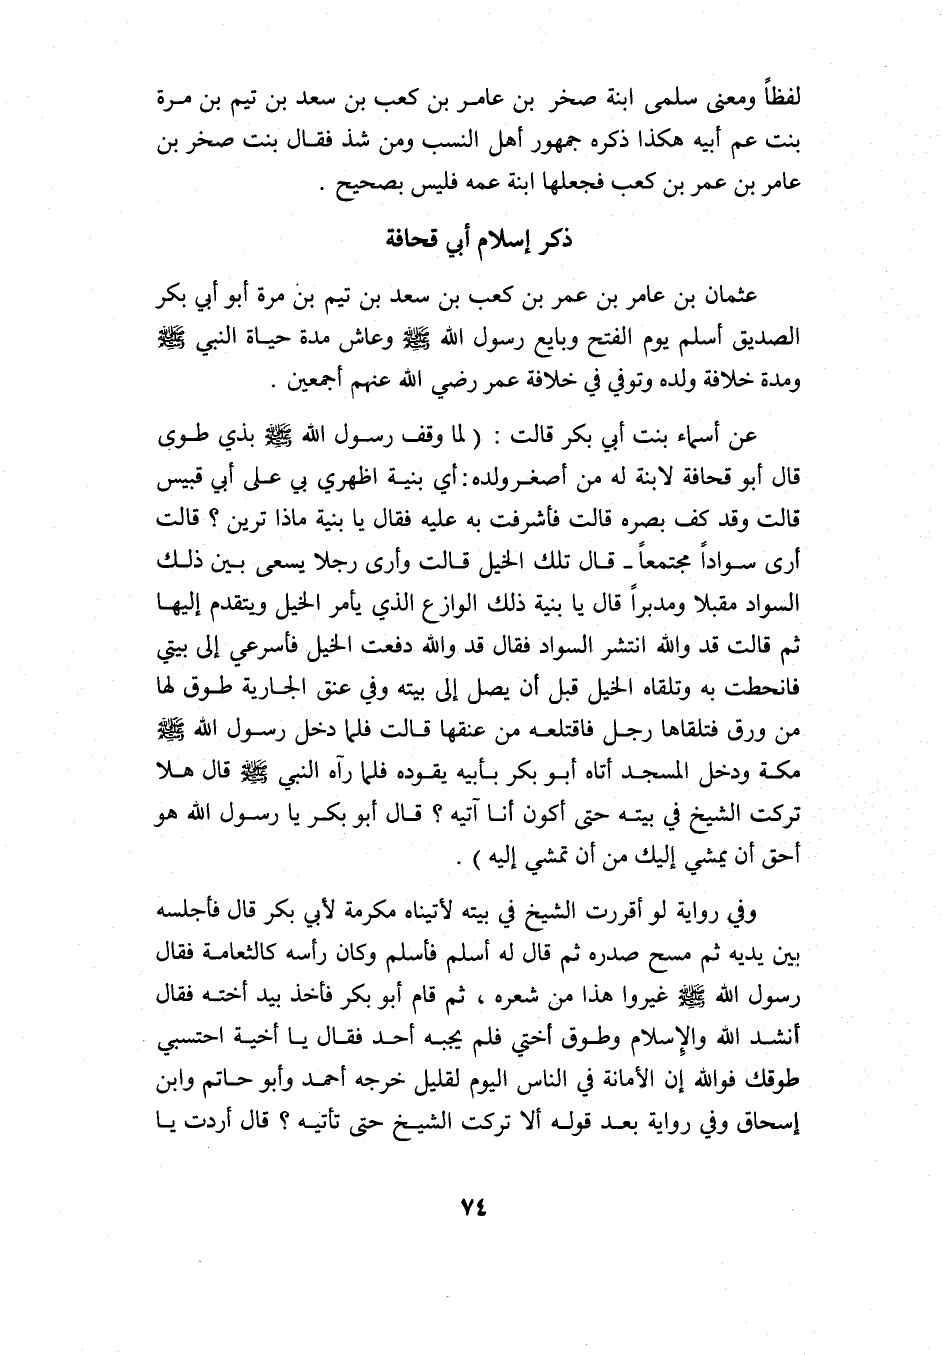 لفظاً ومعنى سلمى ابنة صخر بن عامر بن كعب بن سعد بن تيم بن مرة
بنت عم أبيه هكذا ذكره جمهور أهل النسب ومن شذ فقال بنت صخر بن
عامر بن عمر بن كعب فجعلها ابنة عمه فليس بصحيح .
ذكر إسلام أبي قحافة
عثمان بن عامر بن عمر بن كعب بن سعد بن تيم بن مرة أبو أبي بكر
الصديق أسلم يوم الفتح وبايع رسول الله ﷺ وعاش مدة حياة النبي ﷺ
ومدة خلافة ولده وتوفي في خلافة عمر رضي الله عنهم أجمعين .
عن أسماء بنت أبي بكر قالت : ( لما وقف رسول الله ﷺ بذي طوى
قال أبو قحافة لابنة له من أصغر ولده : أي بنية اظهري بي على أبي قبيس
قالت وقد كف بصره قالت فأشرفت به عليه فقال يا بنية ماذا ترين ؟ قالت
أرى سواداً مجتمعاً - قال تلك الخيل قالت وأرى رجلا يسعى بين ذلك
السواد مقبلا ومدبراً قال يا بنية ذلك الوازع الذي يأمر الخيل ويتقدم إليها
ثم قالت قد والله انتشر السواد فقال قد والله دفعت الخيل فأسرعي إلى بيتي
فانحطت به وتلقاه الخيل قبل أن يصل إلى بيته وفي عنق الجارية طوق لها
من ورق فتلقاها رجل فاقتلعه من عنقها قالت فلما دخل رسول الله ﷺ
مكة ودخل المسجد أتاه أبو بكر بأبيه يقوده فلما رآه النبي ﷺ قال هلا
تركت الشيخ في بيته حتى أكون أنا آتيه ؟ قال أبو بكر يا رسول الله هو
أحق أن يمشي إليك من أن تمشي إليه ) .
وفي رواية لو أقررت الشيخ في بيته لأتيناه مكرمة لأبي بكر قال فأجلسه
بين يديه ثم مسح صدره ثم قال له أسلم فأسلم وكان رأسه كالثعامة فقال
رسول الله ﷺ غيروا هذا من شعره ، ثم قام أبو بكر فأخذ بيد أخته فقال
أنشد الله والإسلام وطوق أختي فلم يجبه أحد فقال يا أخية احتسبي
طوقك فوالله إن الأمانة في الناس اليوم لقليل خرجه أحمد وأبو حاتم وابن
إسحاق وفي رواية بعد قوله ألا تركت الشيخ حتى تأتيه ؟ قال أردت يا
٧٤